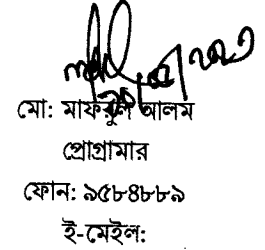 মো: মাফরুল আলম
প্রোগ্রামার
ফোন: ৯৫৮৪৮৮৯
ই-মেইল: